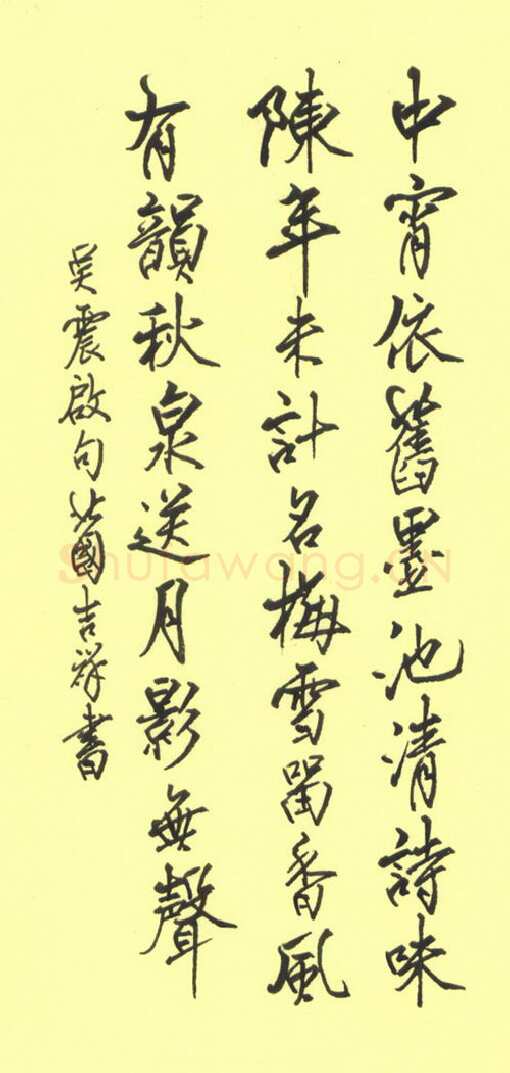 中宵依舊墨池清詩味
陳年未計名梅雪留香風
有韻秋泉送月影無聲
吳震啟句 國吉祥書
Shufawang.CN